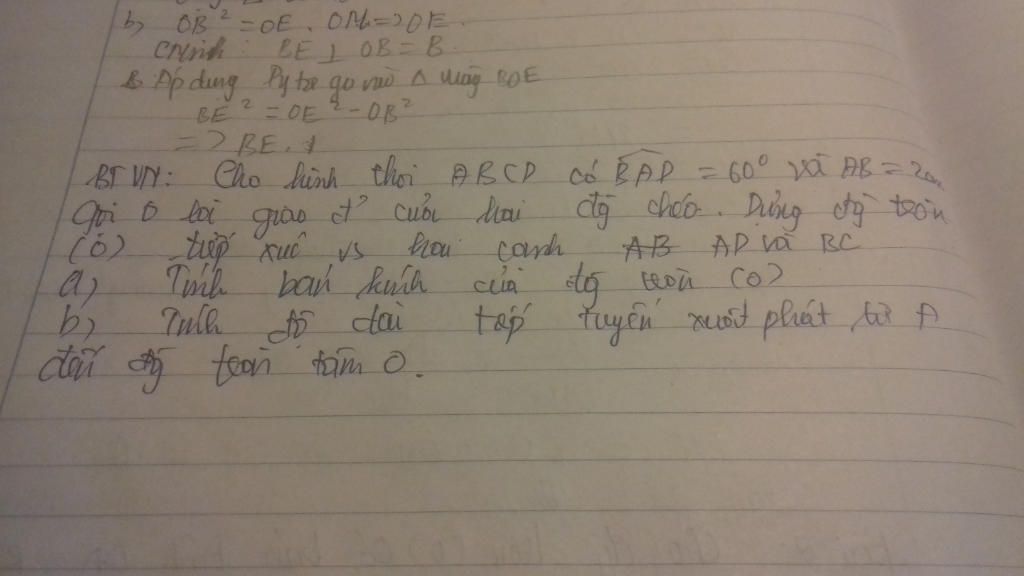 b, OB² = OE. OM => OE.
CMinh: BE ⊥ OB = B.
Áp dụng Pytago vào Δ vuông BOE
BE² = OE² - OB²
=> BE.
BTVN: Cho hình thoi ABCD có BAD = 60° và AB = 2cm
Gọi O là giao đ' của hai đg chéo. Dựng đg tròn
(O) tiếp xúc vs hai cạnh AB AD và BC
a) Tính bán kính của đg tròn (O)
b) Tính độ dài tiếp tuyến xuất phát từ A
đến đg tròn tâm O.